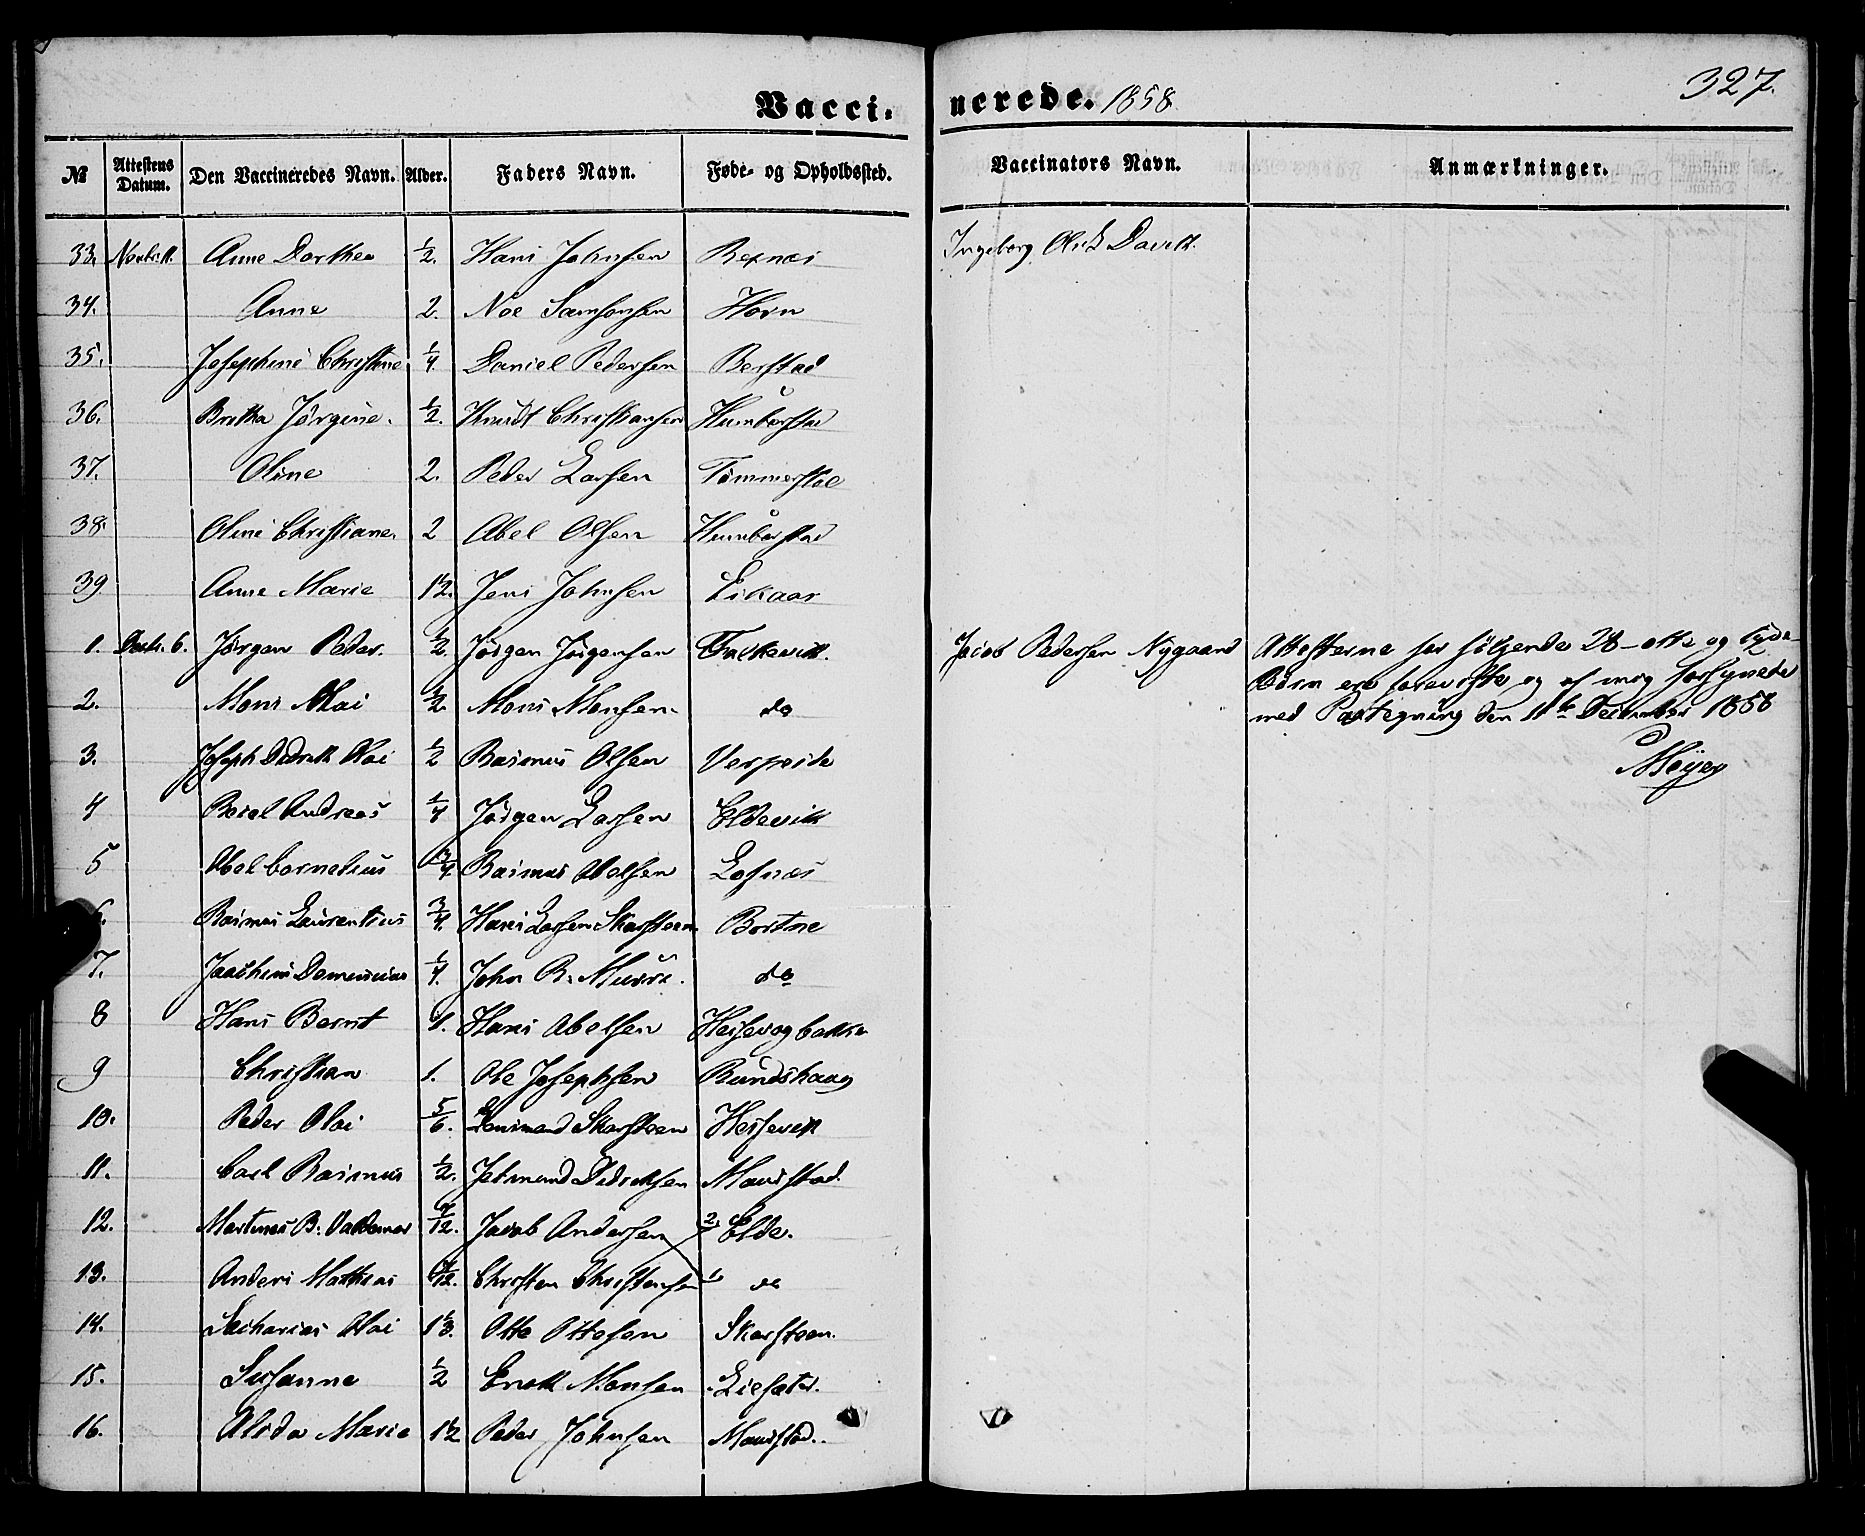 327.
Vacci- nerede. 1858
№ Attestens Datum. Den Vaccineredes Navn. Alder. Faders Navn. Føde- og Opholdssted. Vaccinators Navn. Anmærkninger.
33. Anne Dorthea 1/2. Hans Johnsen Rexnæs Ingeborg
34. Anne 2. Noe Samsonsen Horn
35. Josephine Christine 1/4. Daniel Pedersen Berstad
36. Britha Jørgine. 1/2. Knudt Christiansen Humborstad
37. Oline 2. Peder Larsen Tømmerstøl
38. Oline Christiane. 2 Abel Olsen Humborstad
39 Anne Marie 1 1/2. Jens Johnsen Eikaas
1. Decbr. 6. Jørgen Peder. 1/2. Jørgen Jørgensen Falkevik. Jacob Pedersen Nygaard Attesterne for følgende 28-otte og tyve-
2. Mons Oloi 1/2. Mons Monsen. do Børn ere foreviste og af mig forsynede
med Paategning den 11te December 1858
3. Joseph Didrik Oloi 1/2 Rasmus Olsen Verpeide Meyer
4 Berel Andreas 1/4 Jørgen Larsen Eldevik
5 Abel Cornelius 3/4 Rasmus Abelsen Lofnæs
6. Rasmus Laurentius 3/4. Hans Larsen Skarsteen Bortne
7. Joachim 1/4. John R. do
8 Hans Bernt 1. Hans Abelsen
9 Christian 1. Ole Josephsen Rundehaug
10. Peder Oloi 5/6. Skarsteen Hessevik
11. Carl Rasmus 1/2. Jetmund Didriksen Maurstad.
12. Martinus B. Valdemar 7/12. Jacob Andersen 2/ Elde.
13. Anders Mathias Christen Christensen 1. do
14. Zacharias Oloi 1 1/3. Otto Ottesen Skarsteen.
15. Susanne 1/2 Erik Monsen Liesæter.
16. Alida Marie 1 1/2 Peder Johnsen Maurstad.